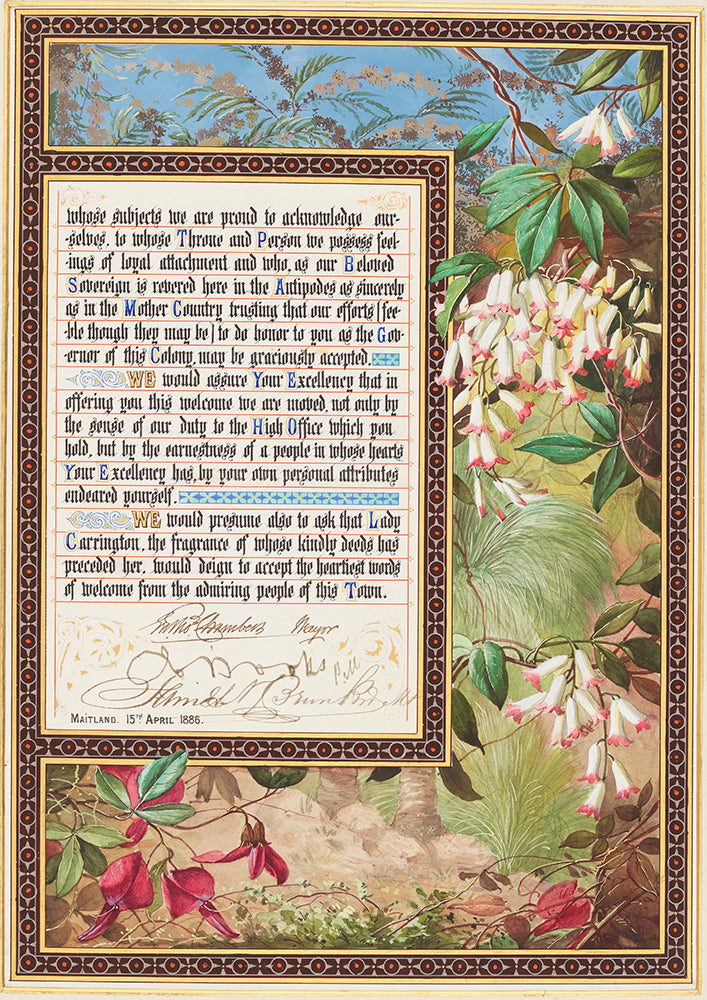 whose subjects we are proud to acknowledge our-
-selves, to whose Throne and Person we possess feel-
ings of loyal attachment and who, as our Beloved
Sovereign is revered here in the Antipodes as sincerely
as in the Mother Country trusting that our efforts (fee-
ble though they may be) to do honor to you as the Gov-
ernor of this Colony, may be graciously accepted.
WE would assure Your Excellency that in
offering you this welcome we are moved, not only by
the sense of our duty to the High Office which you
hold, but by the earnestness of a people in whose hearts
Your Excellency has, by your own personal attributes
endeared yourself.
WE would presume also to ask that Lady
Carrington, the fragrance of whose kindly deeds has
preceded her, would deign to accept the heartiest words
of welcome from the admiring people of this Town.
Chambers Mayor
MAITLAND. 15TH APRIL 1886.